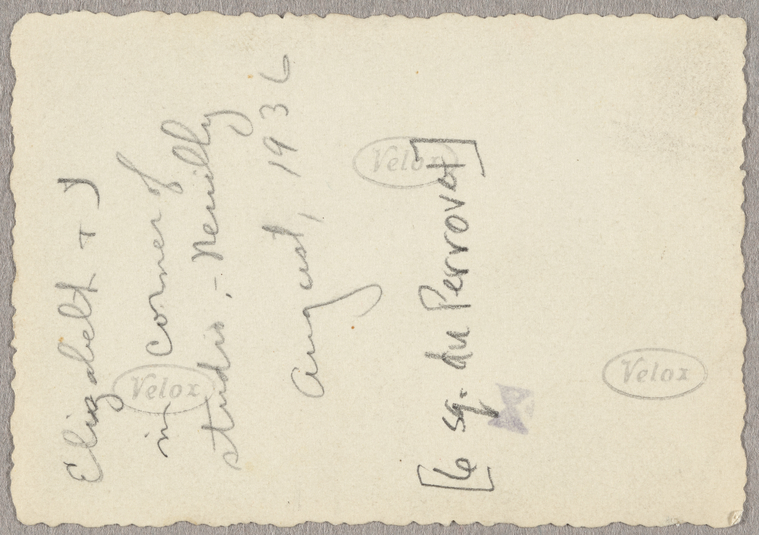 Elizabeth + J
in corner of
studio, - Neuilly
August, 1936
[6 sq. du Perrovet]
Velox
Velox
Velox